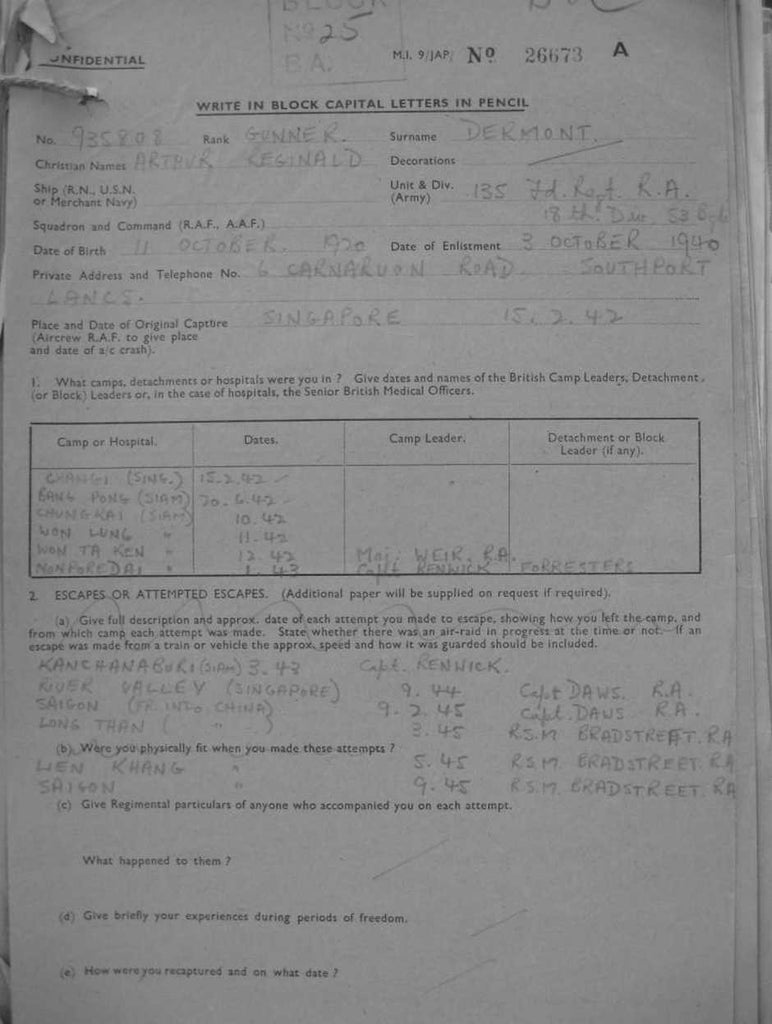 No 25
B.A.
CONFIDENTIAL M.I. 9/JAP/ No 26673 A
WRITE IN BLOCK CAPITAL LETTERS IN PENCIL
No. 935808 Rank GUNNER. Surname DERMONT.
Christian Names ARTHUR REGINALD Decorations
Ship (R.N., U.S.N. or Merchant Navy) Unit & Div. (Army) 135 Fd. Regt. R.A.
18 th. Div.
Squadron and Command (R.A.F., A.A.F.)
Date of Birth 11 OCTOBER. 1920 Date of Enlistment 3 OCTOBER 1940
Private Address and Telephone No. 6 CARNARVON ROAD SOUTHPORT
LANCS.
Place and Date of Original Capture SINGAPORE 15. 2. 42
(Aircrew R.A.F. to give place
and date of a/c crash).
1. What camps, detachments or hospitals were you in ? Give dates and names of the British Camp Leaders, Detachment,
(or Block) Leaders or, in the case of hospitals, the Senior British Medical Officers.
Camp or Hospital. Dates. Camp Leader. Detachment or Block Leader (if any).
CHANGI (SING.) 15.2.42
BANG PONG (SIAM) 20.6.42
CHUNGKAI (SIAM) 10.42
WON LUNG " 11.42
WON TA KEN " 12.42 Maj. WEIR. R.A.
NONPOREDAI " 1.43 Capt RENWICK FORRESTERS
2. ESCAPES OR ATTEMPTED ESCAPES. (Additional paper will be supplied on request if required).
(a) Give full description and approx. date of each attempt you made to escape, showing how you left the camp, and
from which camp each attempt was made. State whether there was an air-raid in progress at the time or not.—If an
escape was made from a train or vehicle the approx. speed and how it was guarded should be included.
KANCHANABURI (SIAM) 3.43 Capt. RENWICK.
RIVER VALLEY (SINGAPORE) 9.44 Capt DAWS. R.A.
SAIGON (FR. INDO CHINA) 9.2.45 Capt. DAWS R.A.
LONG THAN ( " ) 3.45 R.S.M BRADSTREET. RA
(b) Were you physically fit when you made these attempts ?
LIEN KHANG " 5.45 R.S.M. BRADSTREET. RA
SAIGON " 9.45 R.S.M. BRADSTREET. RA
(c) Give Regimental particulars of anyone who accompanied you on each attempt.
What happened to them ?
(d) Give briefly your experiences during periods of freedom.
(e) How were you recaptured and on what date ?